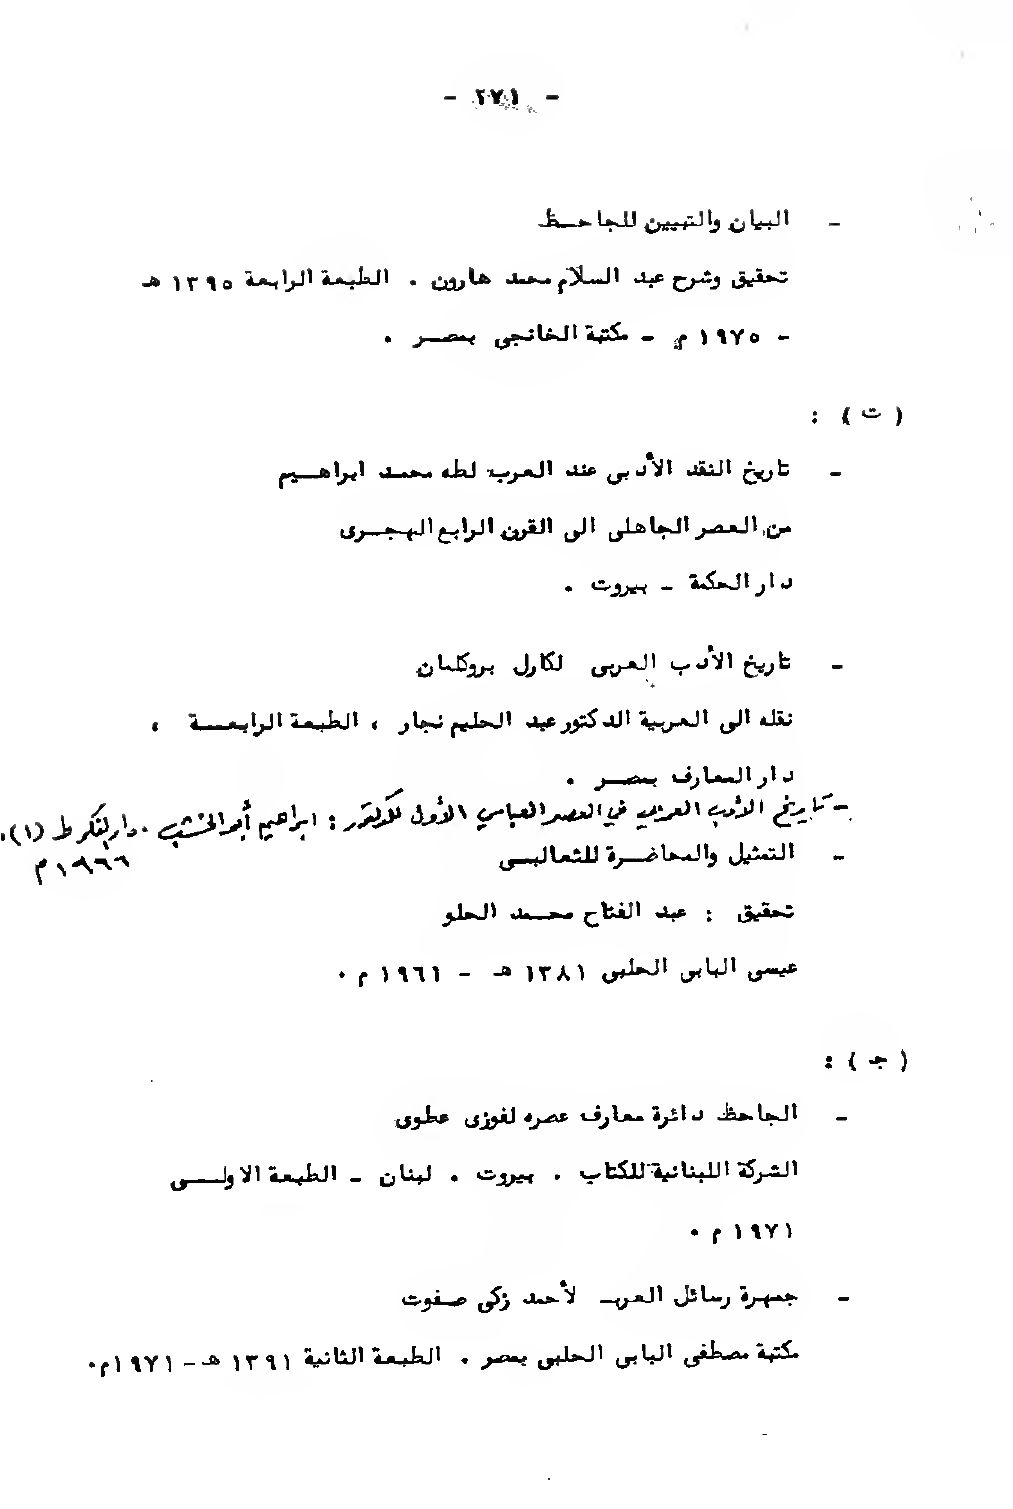 - ٢٧١ -
- البيان والتبيين للجاحـــظ
تحقيق وشرح عبد السلام محمد هارون . الطبعة الرابعة ١٣٩٥ هـ
- ١٩٧٥ م - مكتبة الخانجى بمصـــر .
( ت ) :
- تاريخ النقد الأدبى عند العرب لطه محمـد ابراهـــيم
من العصر الجاهلى الى القرن الرابع الهجـــرى
دار الحكمة - بيروت .
- تاريخ الأدب العربى لكارل بروكلمان
نقله الى العربية الدكتور عبد الحليم نجار ، الطبعة الرابعـــة ،
دار المعارف بمصـــر .
- تاريخ الأدب العربي في العصر العباسي الأول للدكتور : ابراهيم أبو الخشب . دار الفكر ط (١) .
١٩٦٦ م
- التمثيل والمحاضـــرة للثعالبـــى
تحقيق : عبد الفتاح محـمـد الحلو
عيسى البابى الحلبى ١٣٨١ هـ - ١٩٦١ م .
( جـ ) :
- الجاحظ دائرة معارف عصره لفوزى عطوى
الشركة اللبنانية للكتاب . بيروت . لبنان - الطبعة الاولـــى
١٩٧١ م .
- جمهرة رسائل العرب لأحمد زكى صفوت
مكتبة مصطفى البابى الحلبى بمصر . الطبعة الثانية ١٣٩١ هـ - ١٩٧١م .